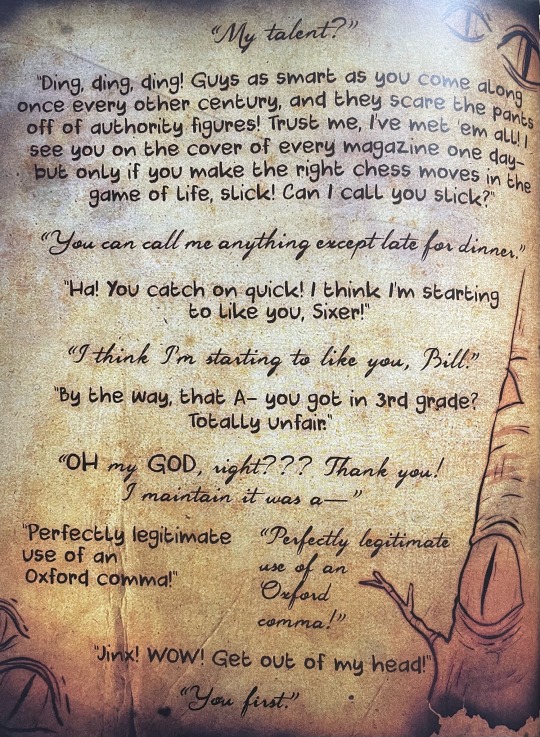 "My talent?"
"Ding, ding, ding! Guys as smart as you come along
once every other century, and they scare the pants
off of authority figures! Trust me, I've met 'em all! I
see you on the cover of every magazine one day—
but only if you make the right chess moves in the
game of life, slick! Can I call you slick?"
"You can call me anything except late for dinner."
"Ha! You catch on quick! I think I'm starting
to like you, Sixer!"
"I think I'm starting to like you, Bill."
"By the way, that A- you got in 3rd grade?
Totally unfair."
"OH my GOD, right??? Thank you!
I maintain it was a—"
"Perfectly legitimate
use of an
Oxford comma!"
"Perfectly legitimate
use of an
Oxford
comma!"
"Jinx! WOW! Get out of my head!"
"You first."